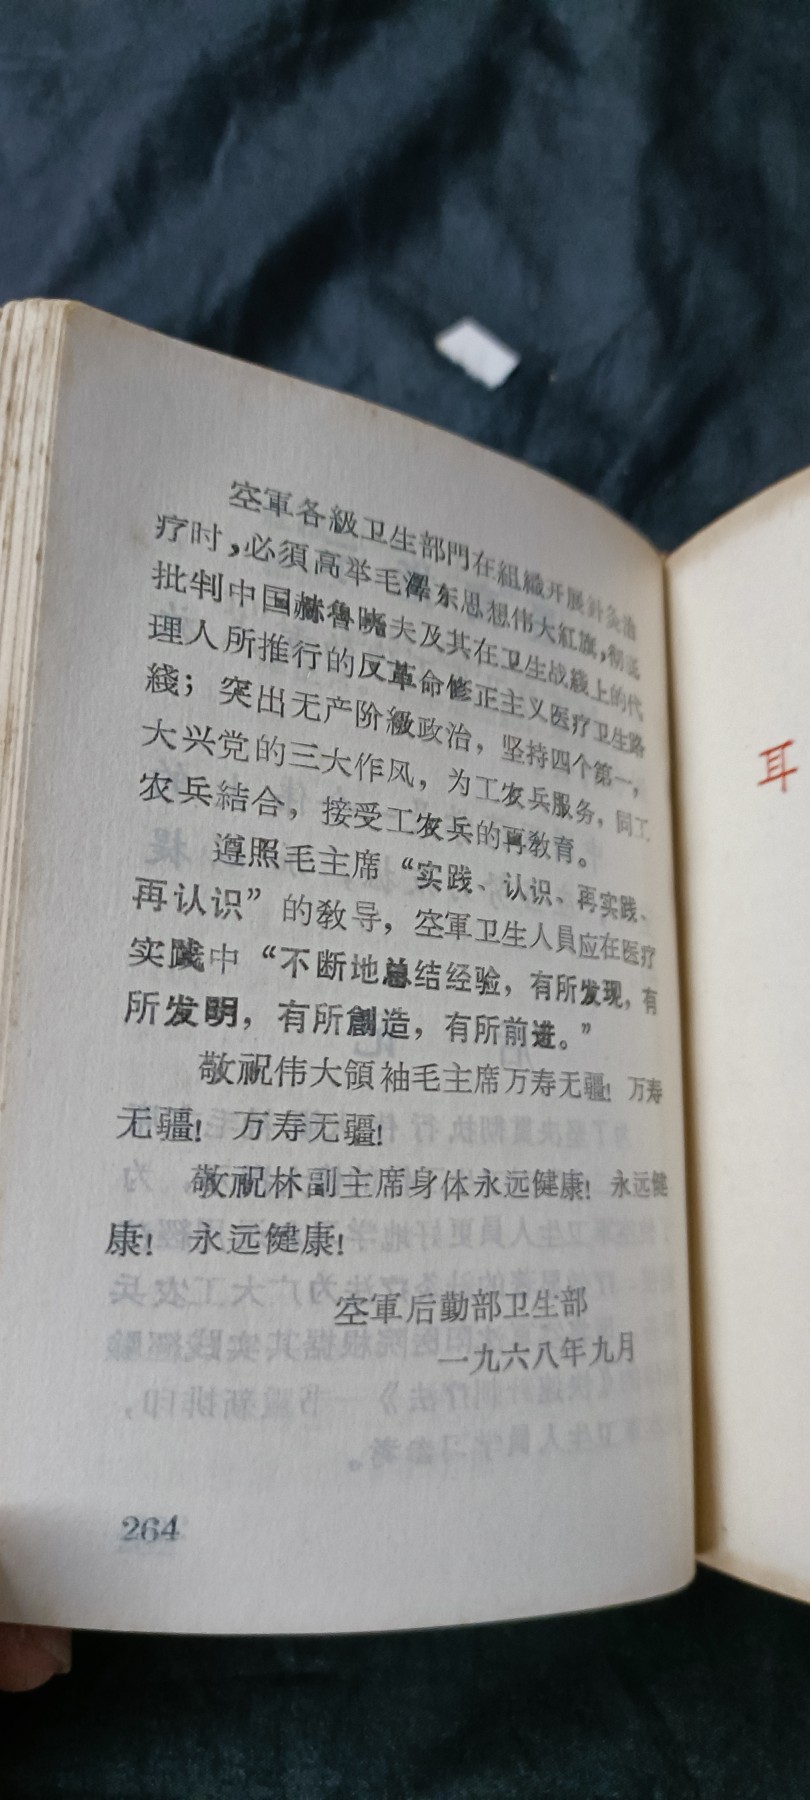 空軍各級卫生部門在組織开展針灸治
疗时，必須高举毛澤东思想伟大紅旗，彻底
批判中国赫魯曉夫及其在卫生战綫上的代
理人所推行的反革命修正主义医疗卫生路
綫；突出无产阶級政治，坚持四个第一，
大兴党的三大作风，为工农兵服务，同工
农兵結合，接受工农兵的再敎育。
遵照毛主席“实践、认识、再实践、
再认识”的敎导，空軍卫生人員应在医疗
实践中“不断地总结经验，有所发现，有
所发明，有所創造，有所前进。”
敬祝伟大領袖毛主席万寿无疆！万寿
无疆！万寿无疆！
敬祝林副主席身体永远健康！永远健
康！永远健康！
空軍后勤部卫生部
一九六八年九月
264
耳